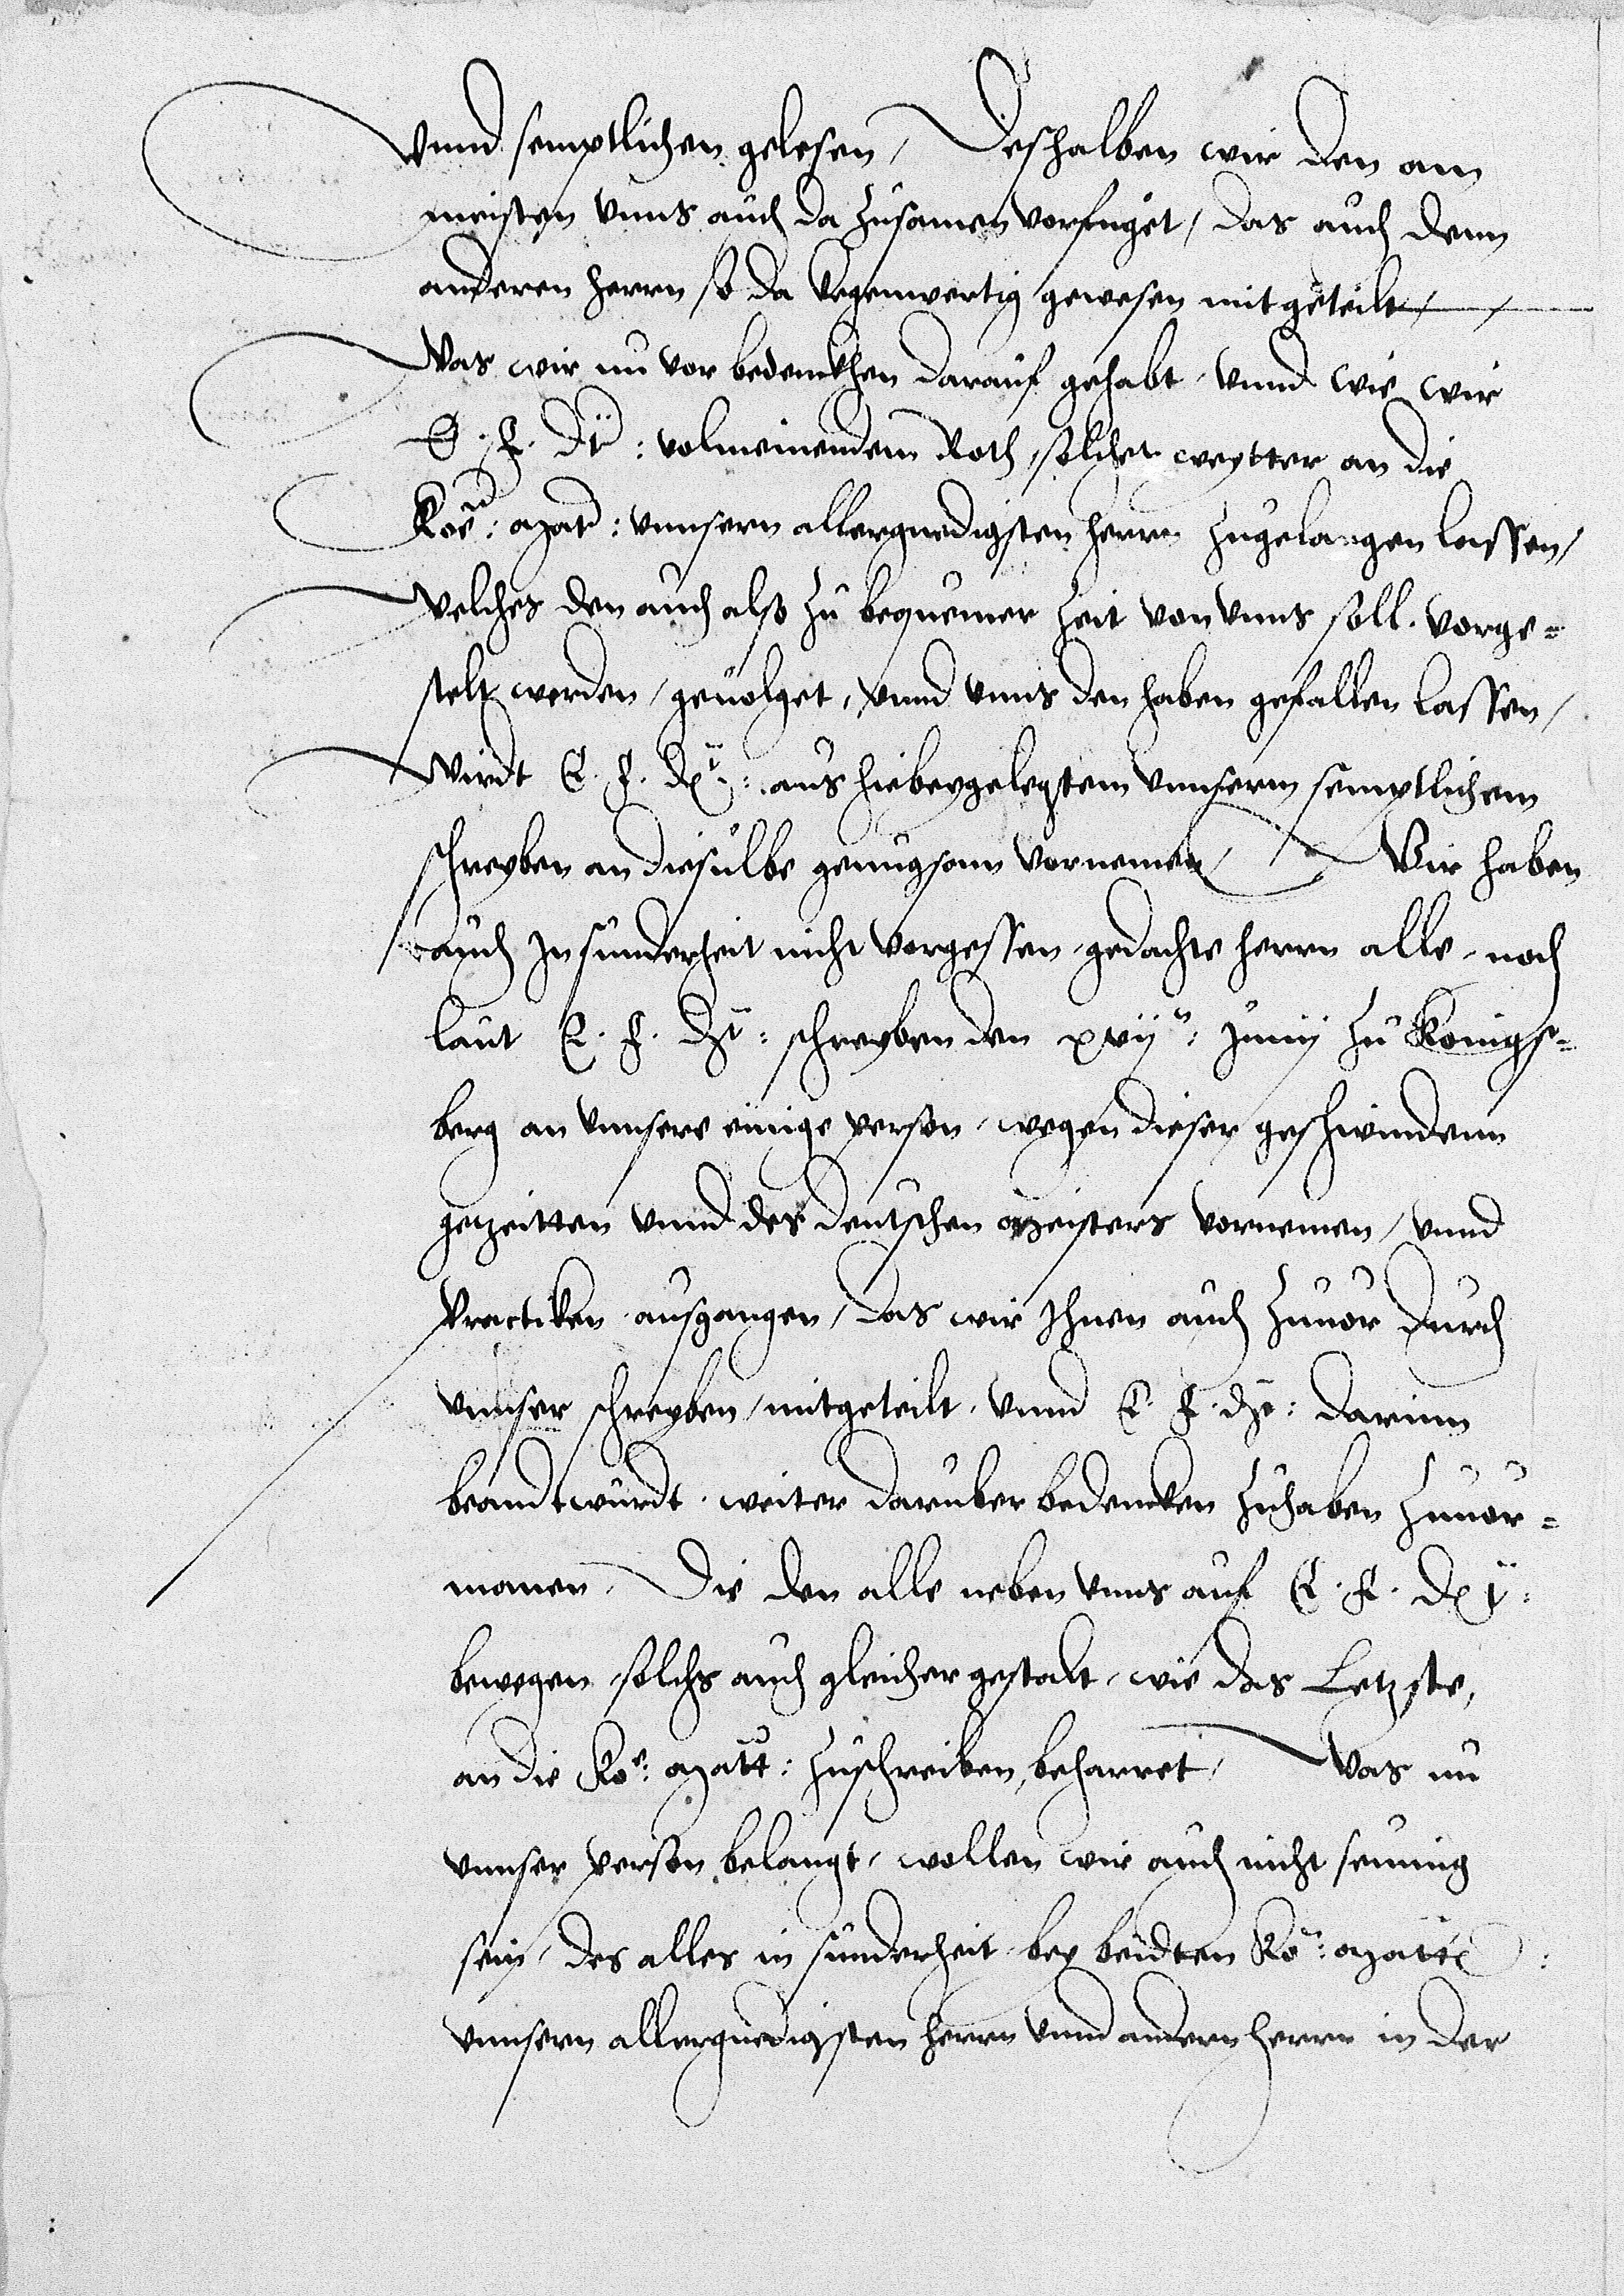 Vnnd semptlichen gelesen / Deshalben wir den am
meisten vnns auch da zusamen vorfuget / das auch denn
anderen herrn so da kegenwertig gewesen mitgeteilt /
Was wir nu vor bedenckhen darauf gehabt / vnnd wie wir
E. F. Dt: volmeinendem Roth, solchet weytter an die
Koe: Mat: vnnsern allergnedigsten herrn zugelangen lassen /
Welches den auch also zu bequemer zeit von vnns soll vorge=
stelt werden / geuolget, vnnd vnns den haben gefallen lassen /
Wirdt E. F. Dt: aus hiebeygelegtem vnnserm semptlichem
schreyben an diesulbe genugsam vornemen / Wir haben
auch Jn sunderheit nicht vorgessen gedachte herrn alle, noch
laut E. F. Dt: schreyben den xvij: Junij zu Konigs=
berg an vnnsere einige person / wegen dieser geschwindenn
gezeitten vnnd des deutschen Meisters vornemen / vnnd
Practiken ausgangen / das wir Jhnen auch zuuor durch
vnnser schreyben / mitgeteilt vnnd E. F. Dt: darinn
beandtwurdt weiter daruber bedencken zuhaben zuuor=
manen. Die den alle neben vnns auf E. F. Dt:
bewegen solchs auch gleicher gestalt, wie das Letzste,
an die Ko: Matt: zuschreiben, beharret, Was nu
vnnser person belangt, wollen wir auch nicht seumig
sein, des alles in sunderheit bey beidten Ko: Matt:
vnnsern allergnedigsten herrn vnnd andern herrn in der